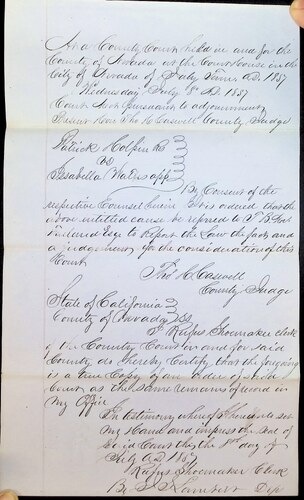 At a County Court held in and for the
County of Nevada at the Court House in the
City of Nevada of July Term A.D. 1857
Wednesday July 8th A.D. 1857
Court met pursuant to adjournment
Present Hon Tho H Caswell County Judge
Patrick Halpin
vs
Isabella
By Consent of the
respective Counsel herein It is ordered that the
above entitled cause be referred to
Esq to report the Law the facts and
a judgement for the consideration of this
Court
Tho H. Caswell
County Judge
State of California
County of Nevada SS
I Rufus Shoemaker clerk
of the County Court in and for said
County do hereby Certify that the foregoing
is a true Copy of an order of said
Court as the same remains of record in
my office
In testimony whereof I hereunto set
my Hand and impress the seal of
said Court this the 8th day of
July A.D. 1857
Rufus Shoemaker Clerk
By Dep